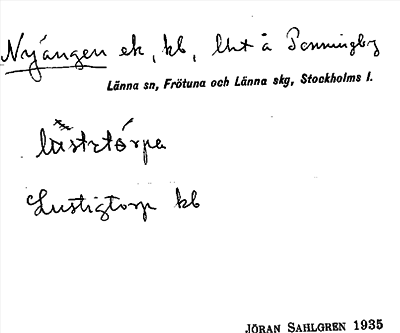 Nyängen ek, kb, lht å Penningby
Länna sn, Frötuna och Länna skg, Stockholms l.
Lustigtorp kb
JÖRAN SAHLGREN 1935